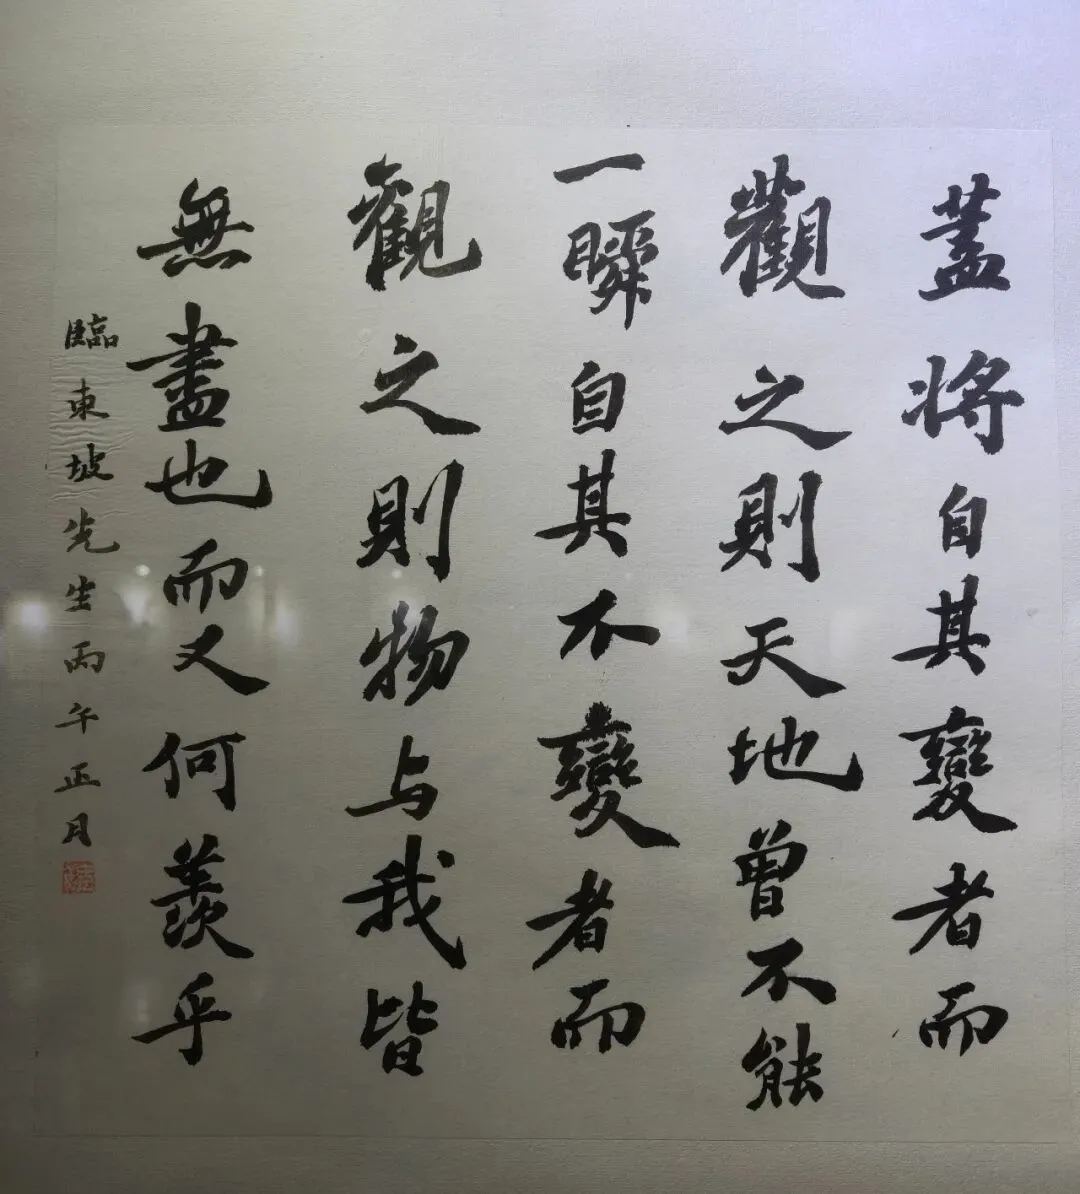 蓋將自其變者而
觀之則天地曾不能
一瞬自其不變者而
觀之則物与我皆
無盡也而又何羨乎
臨東坡先生丙午正月